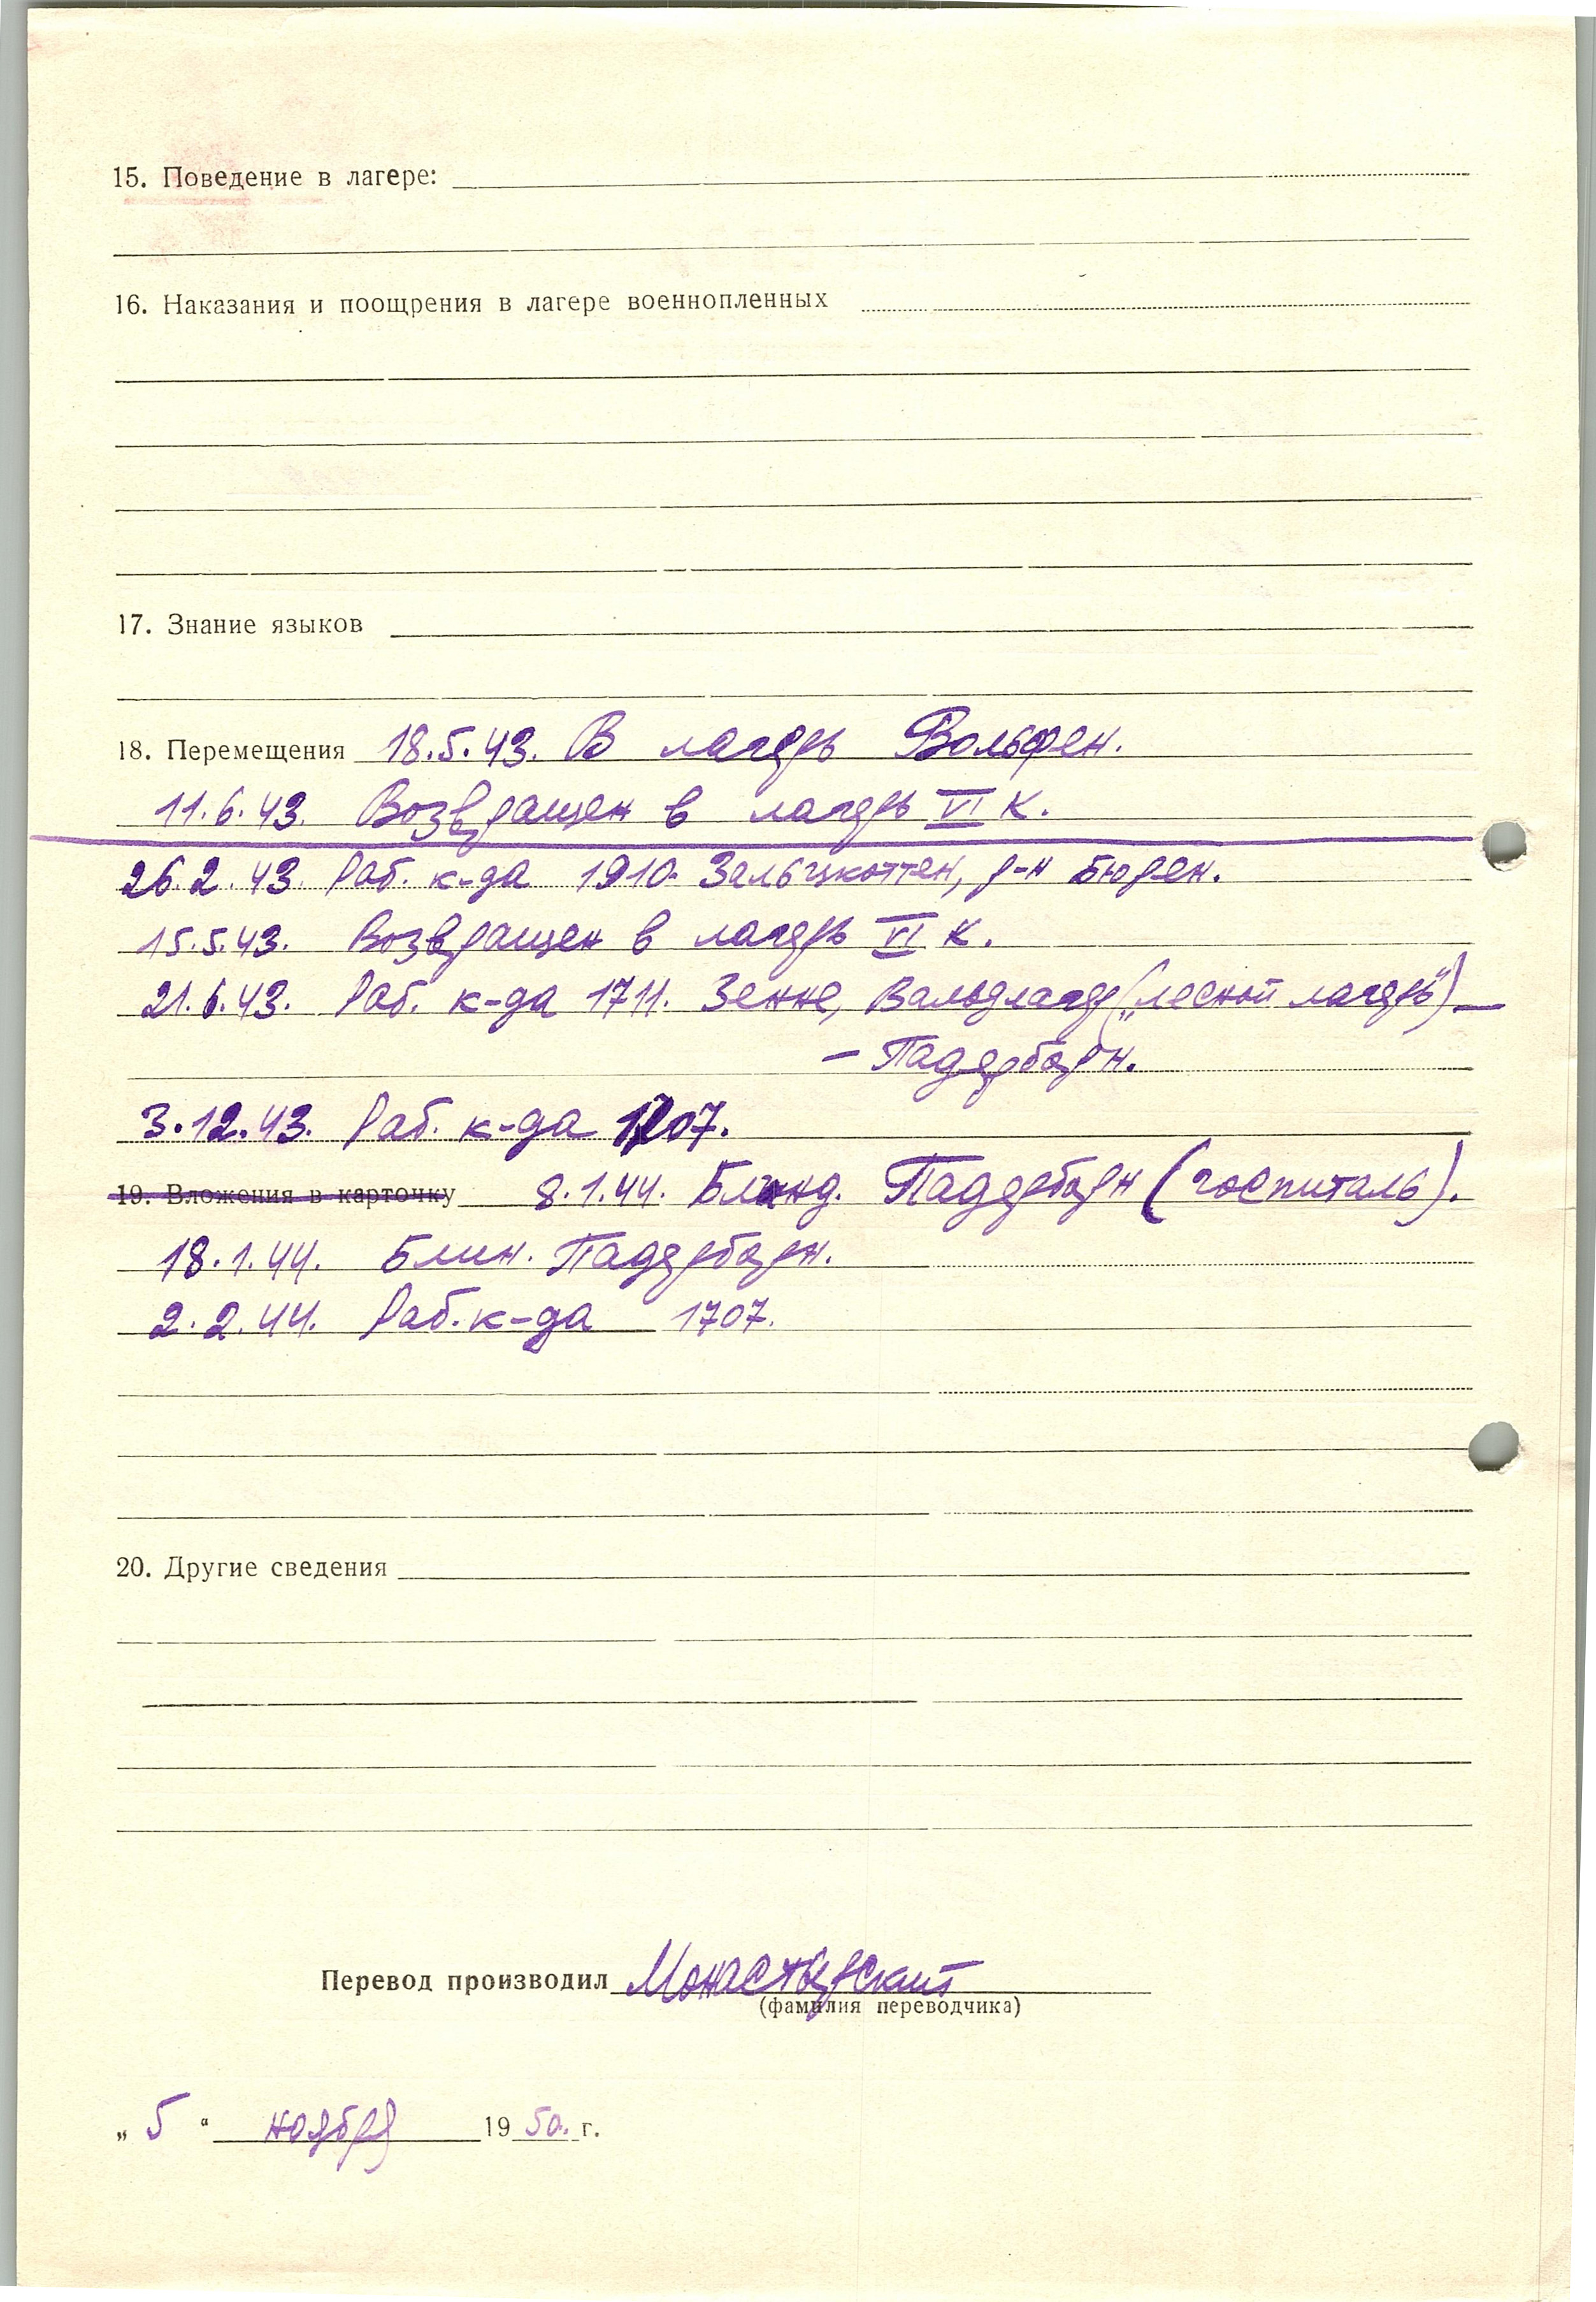 15. Поведение в лагере:
16. Наказания и поощрения в лагере военнопленных
17. Знание языков
18. Перемещения 18.5.43. В лагерь Вольфен.
11.6.43. Возвращен в лагерь VI К.
26.2.43. Раб. к-да 1910. Зальцкоттен, р-н Бюрен.
15.5.43. Возвращен в лагерь VI К.
21.6.43. Раб. к-да 1711. Зенне, Вальдлагер („лесной лагерь") —
— Падерборн.
3.12.43. Раб. к-да 1707.
19. Вложения в карточку 8.1.44. Блинд. Падерборн (госпиталь).
18.1.44. Блин. Падерборн.
2.2.44. Раб. к-да 1707.
20. Другие сведения
Перевод производил Монастырский
(фамилия переводчика)
„ 5 " ноября 1950. г.